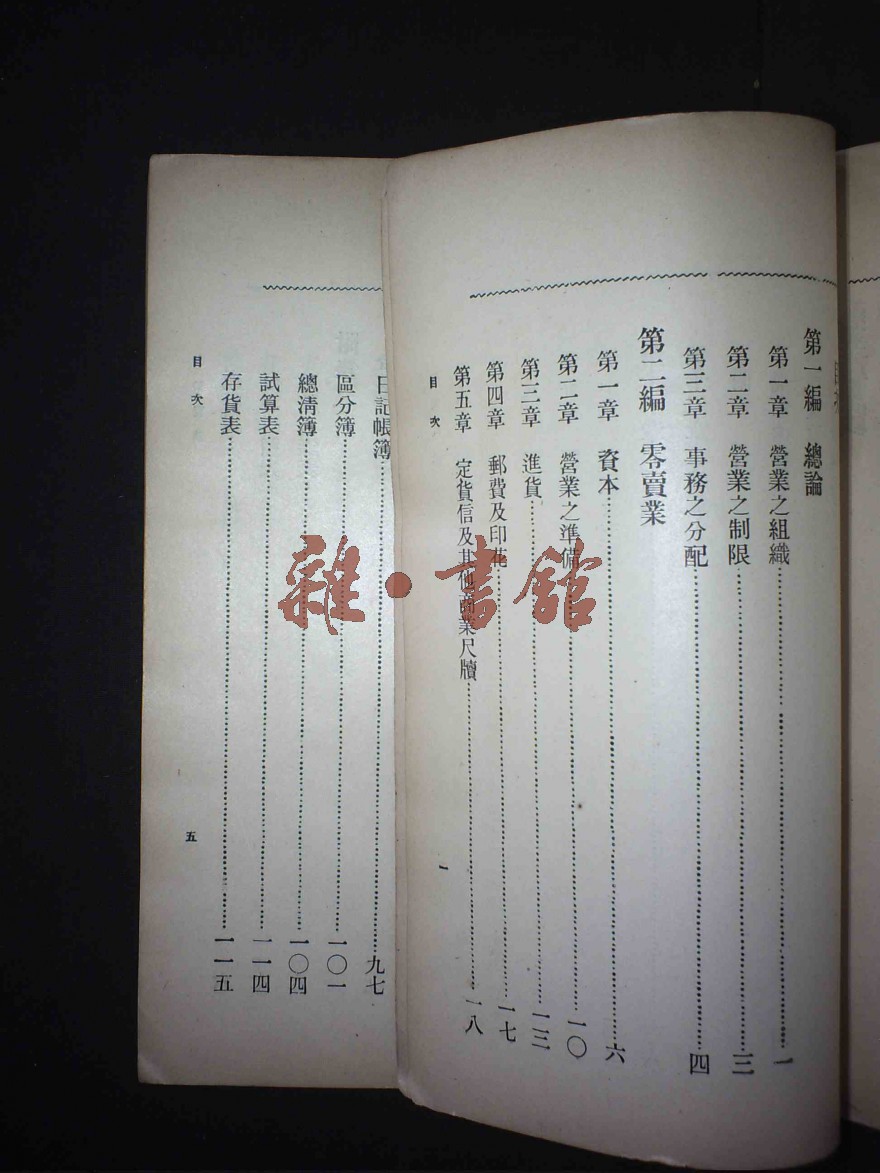 第一編　總論
第一章　營業之組織 一
第二章　營業之制限 三
第三章　事務之分配 四
第二編　零賣業
第一章　資本 六
第二章　營業之準備 一〇
第三章　進貨 一三
第四章　郵費及印花 一七
第五章　定貨信及其他商業尺牘 一八
目次
一
日記帳簿 九七
區分簿 一〇一
總清簿 一〇四
試算表 一一四
存貨表 一一五
目次
五
雜·書館